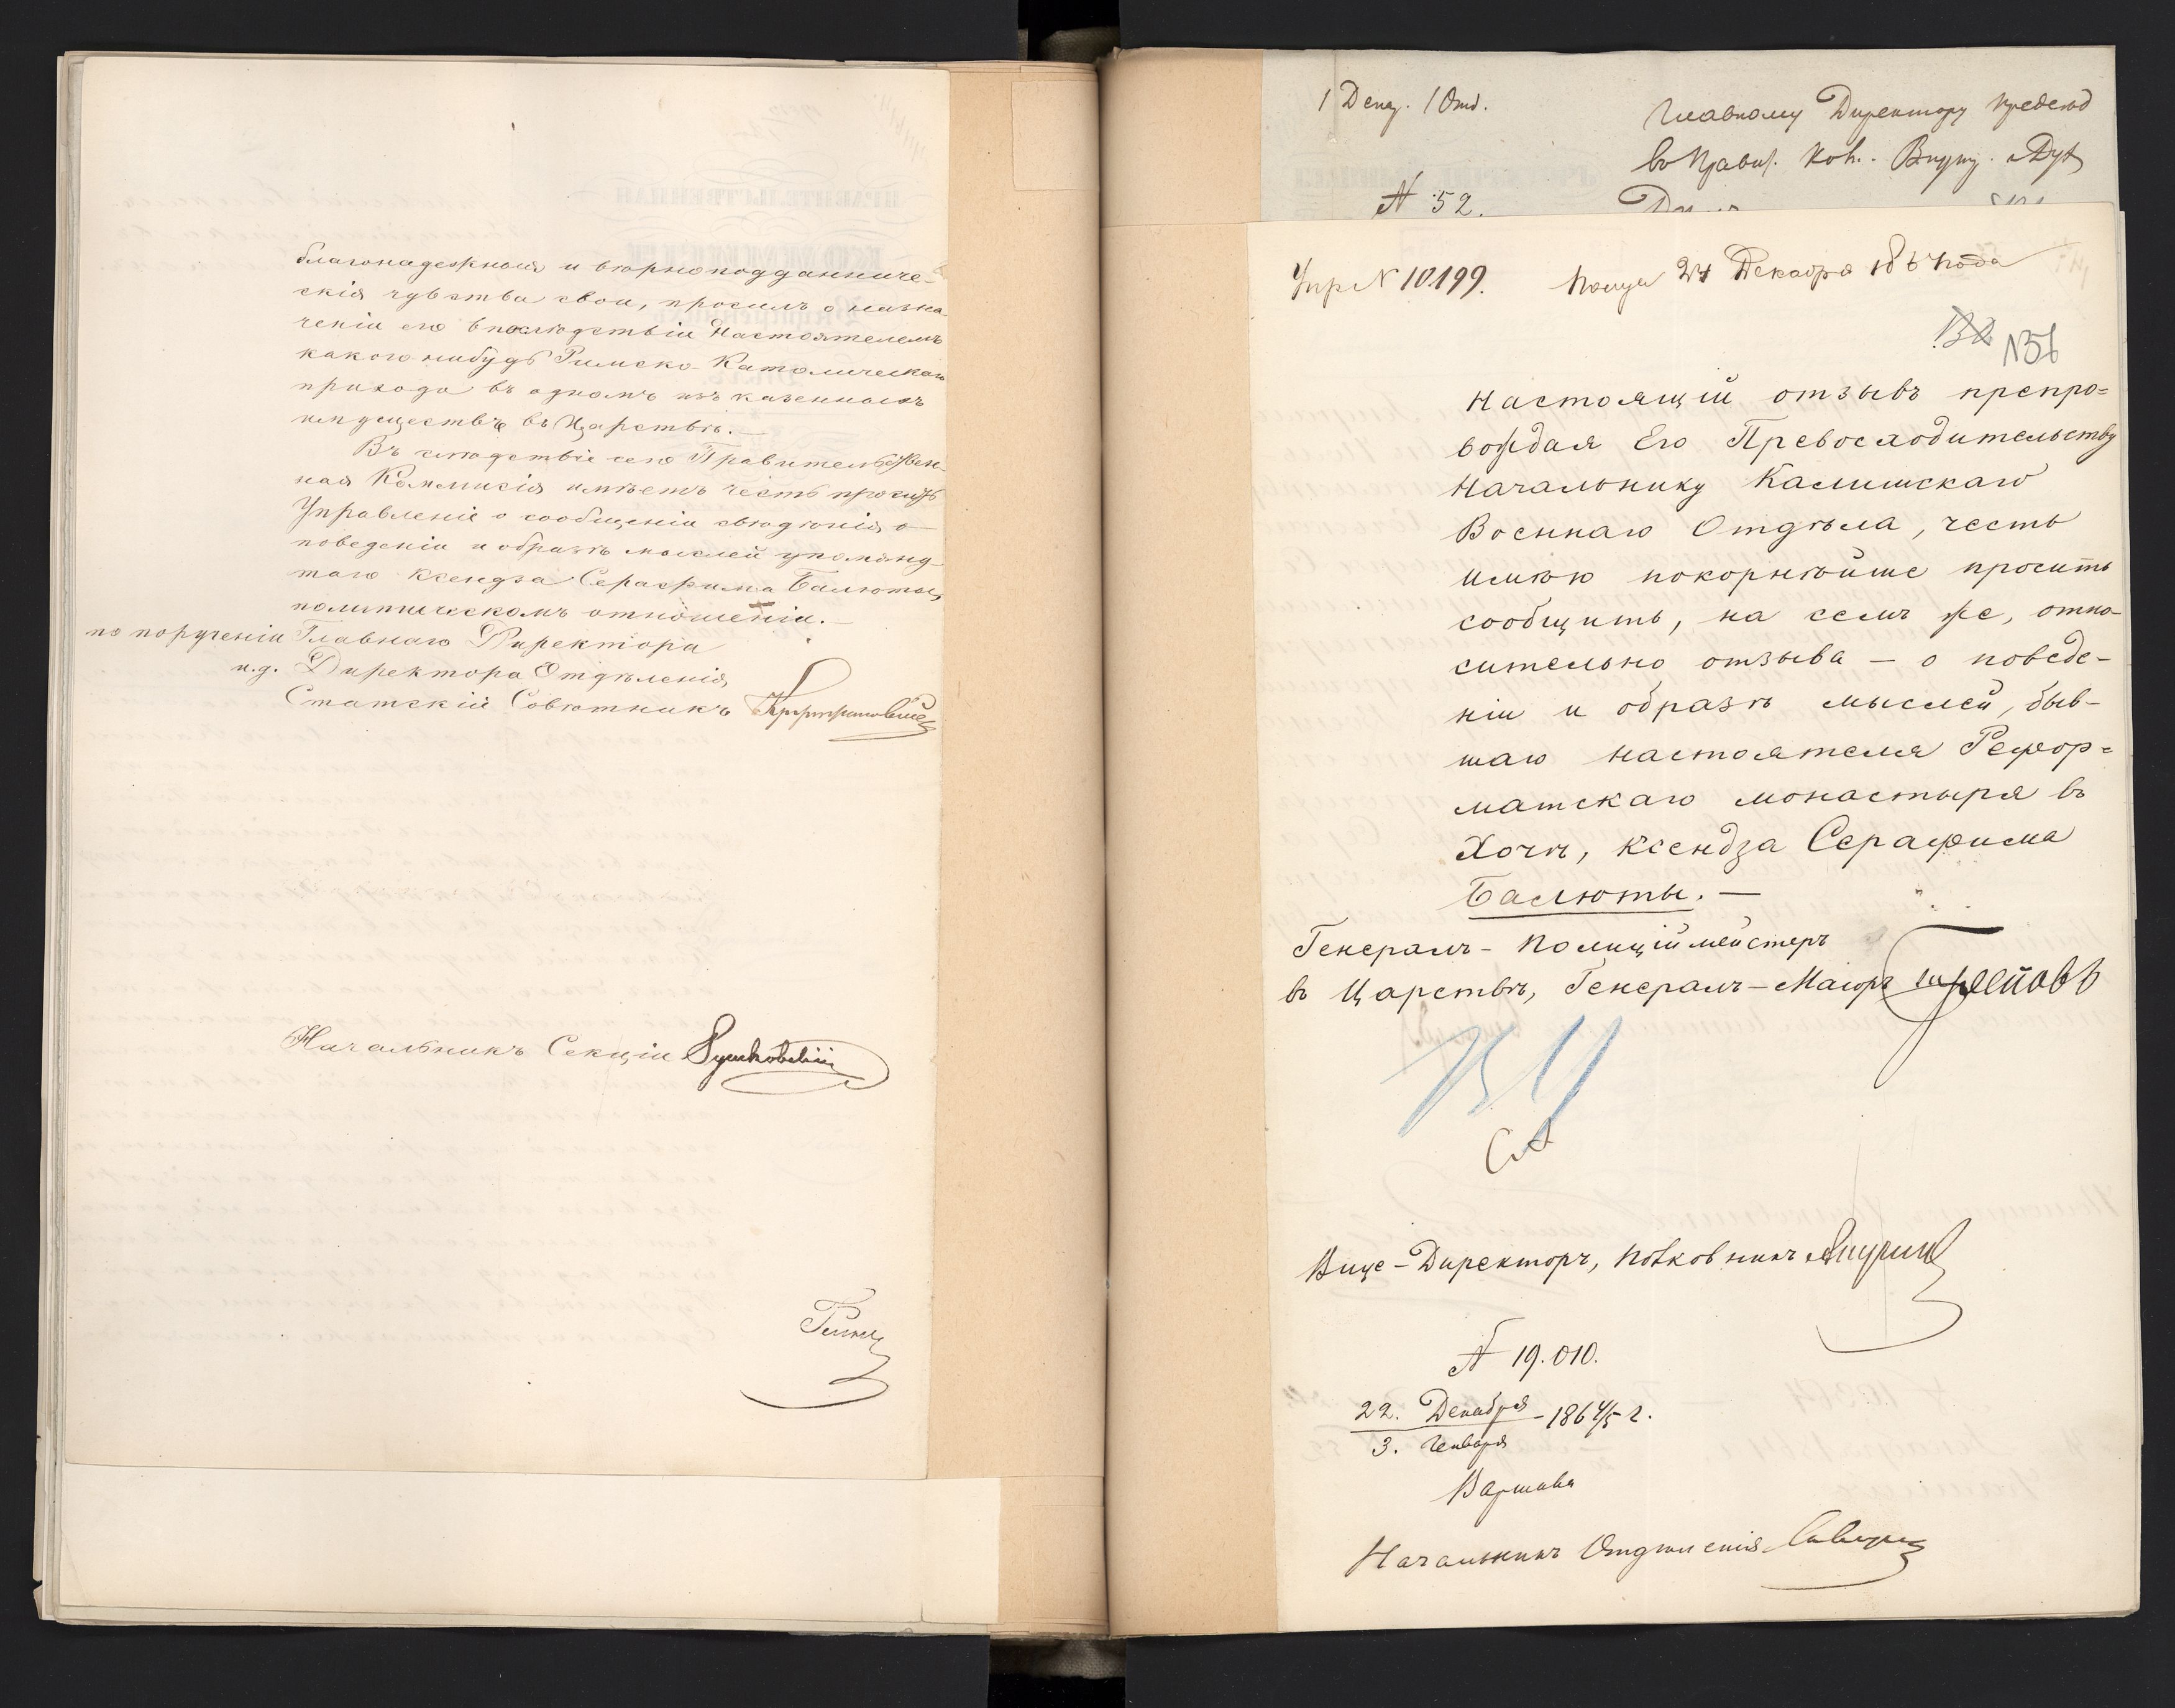 благонадежныя и вѣрноподданниче-
скія чувства свои, просилъ о назна-
ченіи его впослѣдствіи Настоятелемъ
какого нибудь Римско-Католическаго
прихода въ одномъ изъ казенныхъ
имуществъ въ Царствѣ.—
Въ слѣдствіе сего Правительствен-
ная Коммисія имѣетъ честь просить
Управленіе о сообщеніи свѣдѣнія о
поведеніи и образѣ мыслей упомяну-
таго Ксендза Серафима Балюты,
политическомъ отношеніи.—
по порученію Главнаго Директора
и.д. Директора Отдѣленія,
Статскій Совѣтникъ
Начальникъ Секціи
1 Деп. 1 Отд.
Главному Директору Предсѣд
въ Правит. Ком. Внутр. и Дух
№ 52.
Упр № 10199. 24 Декабря 1864 года
132 №56
Настоящій отзывъ препро=
вождая Его Превосходительству
Начальнику Калишскаго
Военнаго Отдѣла, честь
имѣю покорнѣйше просить
сообщить, на семъ же, отно-
сительно отзыва — о поведе-
ніи и образѣ мыслей, быв-
шаго настоятеля Рефор=
матскаго монастыря въ
Хочѣ, ксендза Серафима
Балюты.—
Генералъ-Полиціймейстеръ
въ Царствѣ, Генералъ-Маіоръ Треповъ
Вице-Директоръ, Полковникъ
№ 19.010.
22. Декабря
3. Января - 1864/5 г.
Варшава
Начальникъ Отдѣленія